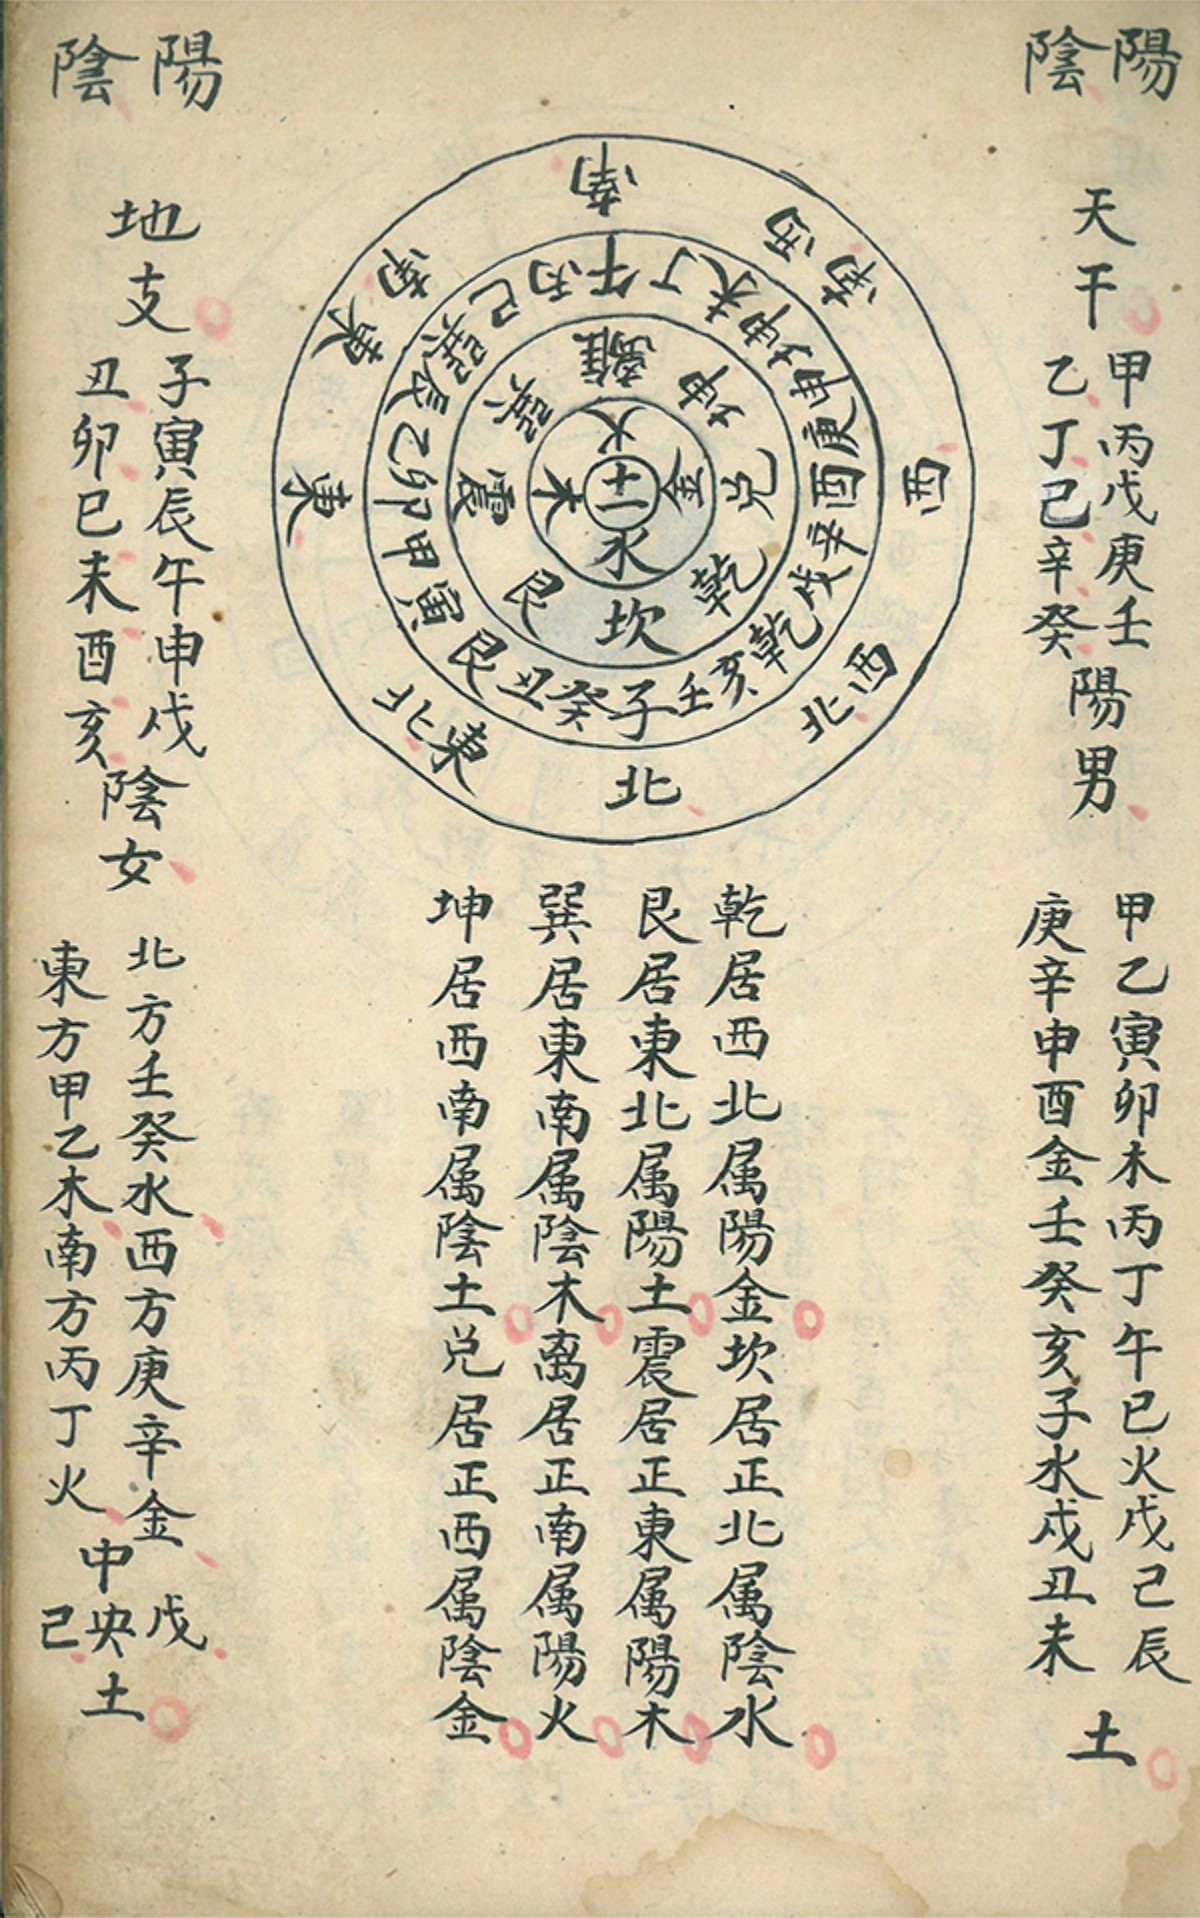 陽陰
天干
甲丙戊庚壬
乙丁己辛癸
陽男
甲乙寅卯木丙丁午巳火戊己辰
庚辛申酉金壬癸亥子水戍丑未
土
南
南西
西
西北
北
東北
東
東南
午丁未坤申庚酉辛戍乾亥壬子癸丑艮寅甲卯乙辰巽巳丙
離坤兌乾坎艮震巽
火金水木
土
乾居西北属陽金坎居正北属陰水
艮居東北属陽土震居正東属陽木
巽居東南属陰木离居正南属陽火
坤居西南属陰土兌居正西属陰金
陽陰
地支
子寅辰午申戍
丑卯巳未酉亥
陰女
北方壬癸水西方庚辛金
東方甲乙木南方丙丁火
中央
戊己
土